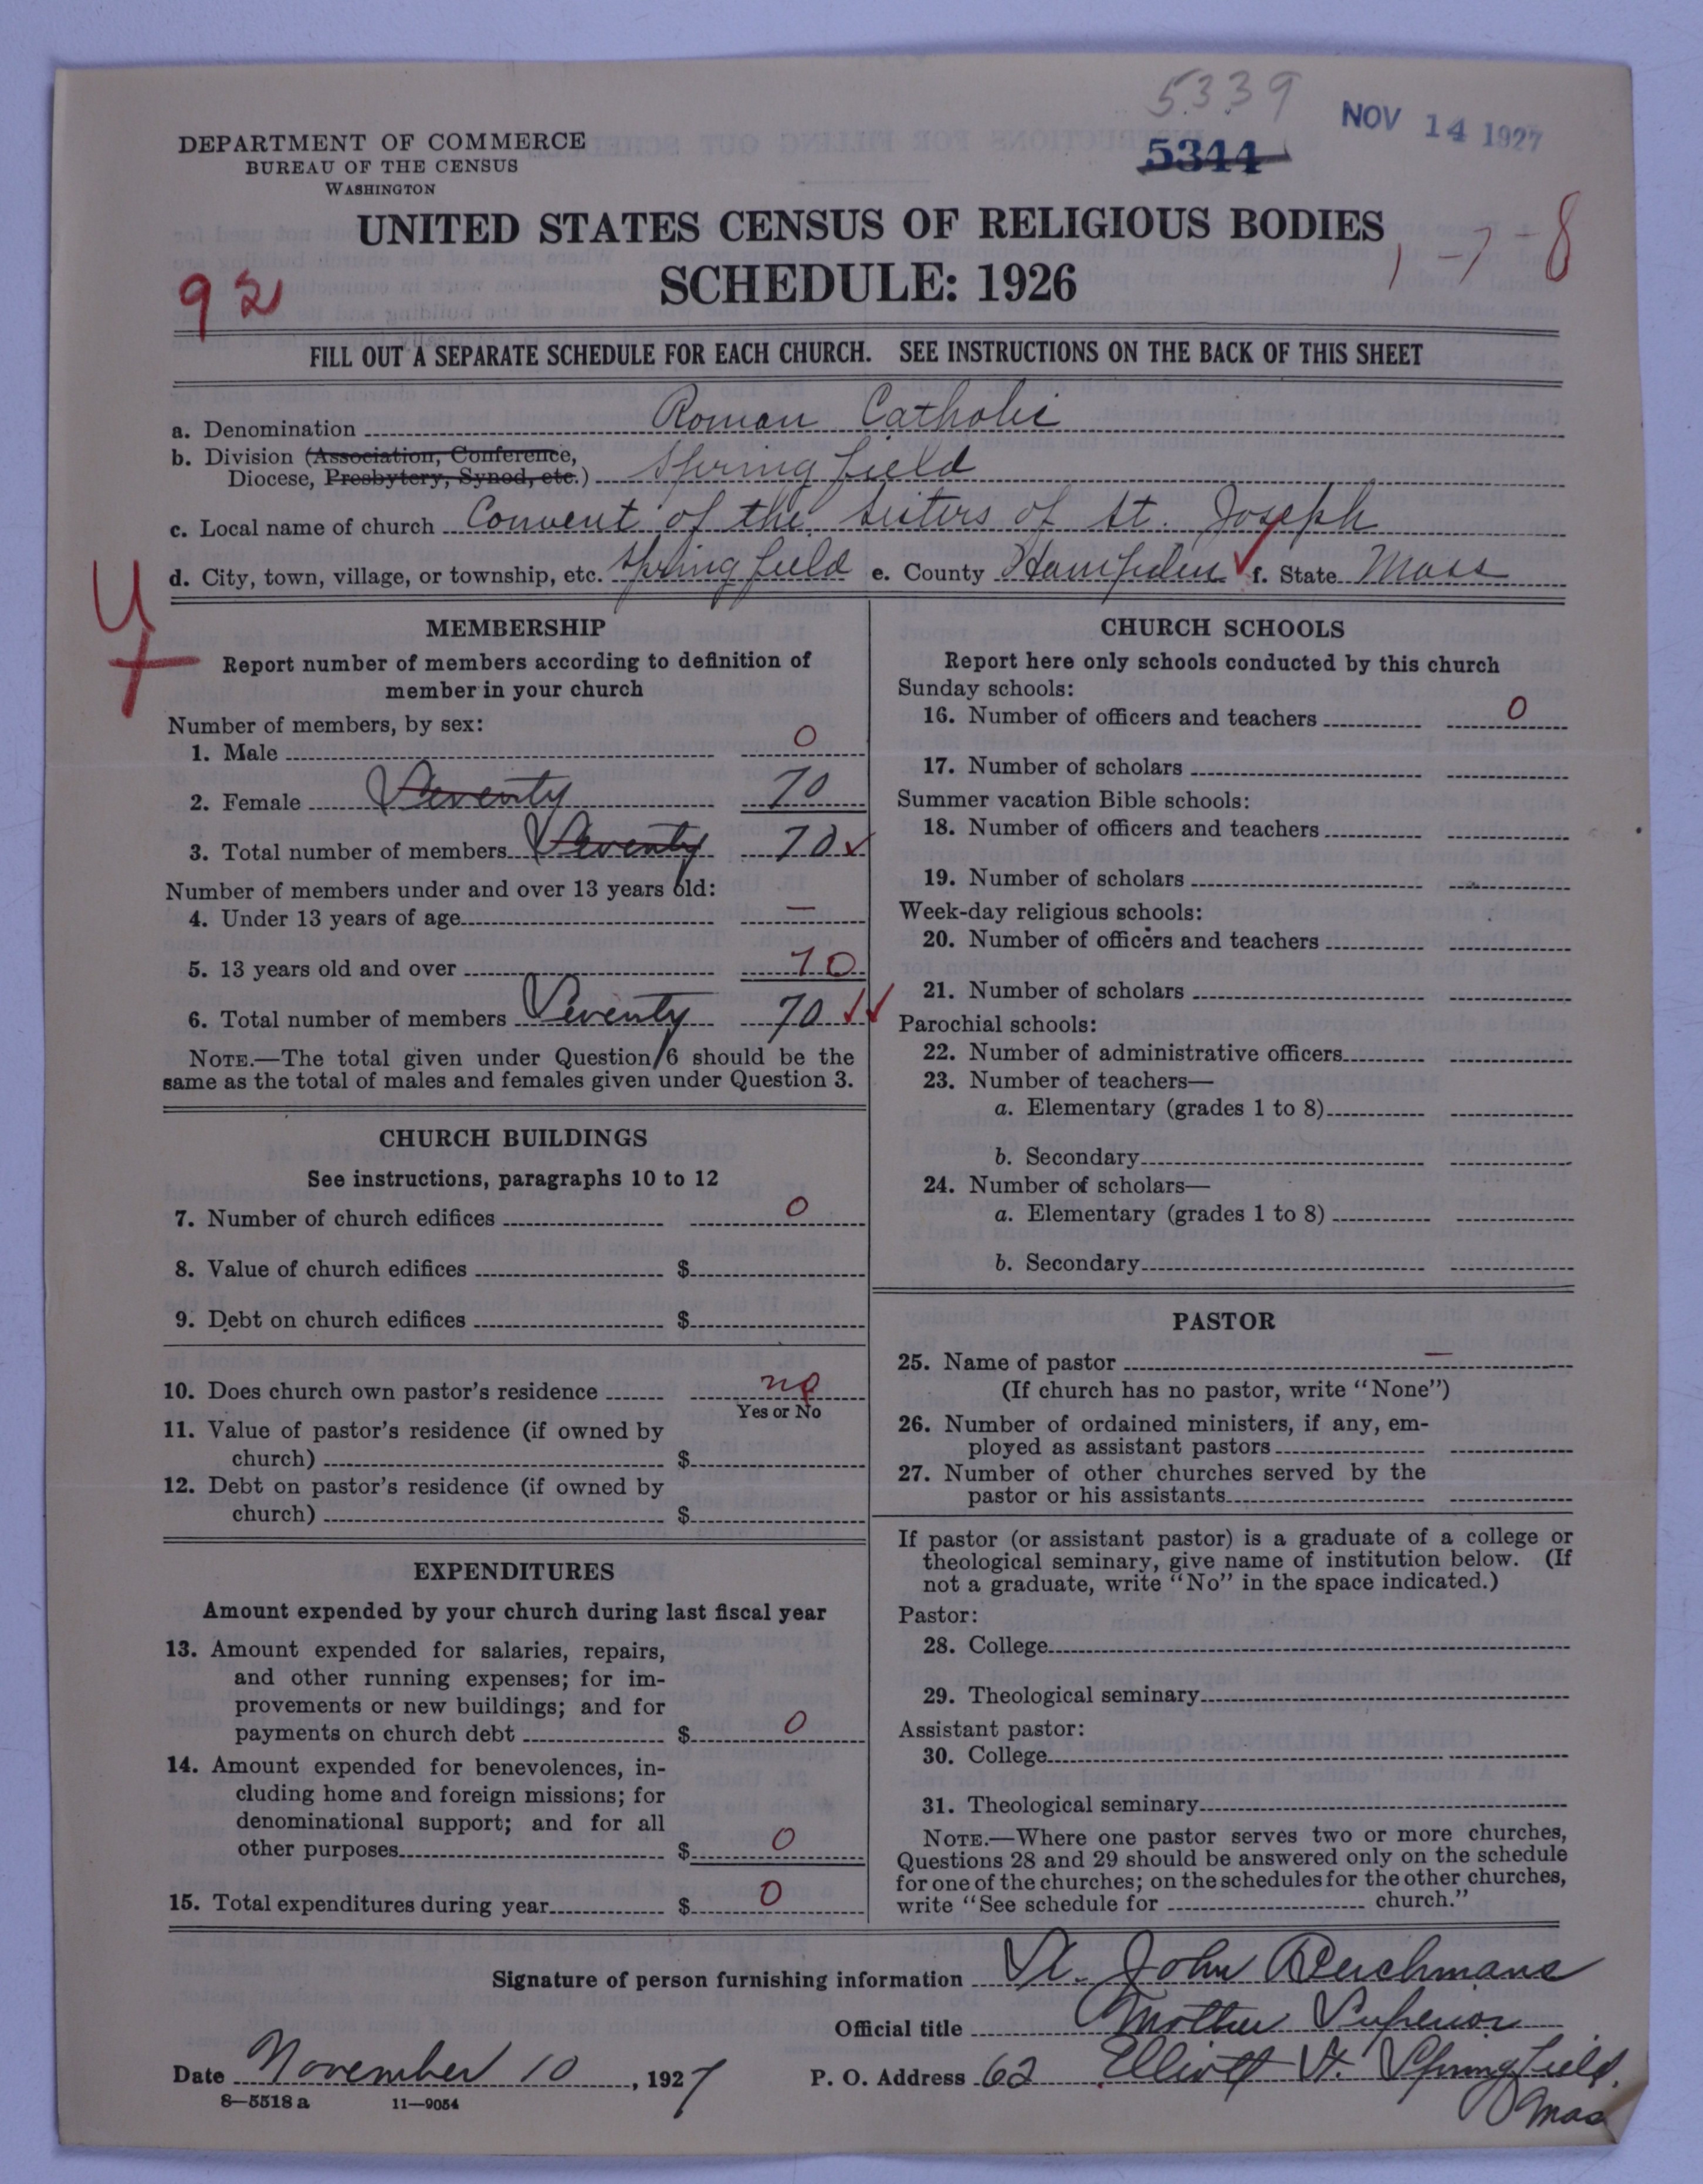 5339
NOV 14 1927
5344
DEPARTMENT OF COMMERCE
BUREAU OF THE CENSUS
WASHINGTON
UNITED STATES CENSUS OF RELIGIOUS BODIES
SCHEDULE: 1926
1-7-8
92
FILL OUT A SEPARATE SCHEDULE FOR EACH CHURCH. SEE INSTRUCTIONS ON THE BACK OF THIS SHEET
a. Denomination Roman Catholic
b. Division (Association, Conference,
Diocese, Presbytery, Synod, etc.) Springfield
c. Local name of church Convent of the Sisters of St. Joseph
d. City, town, village, or township, etc. Springfield e. County Hampden f. State Mass
MEMBERSHIP
Report number of members according to definition of
member in your church
Number of members, by sex:
1. Male 0
2. Female Seventy 70
3. Total number of members Seventy 70
Number of members under and over 13 years old:
4. Under 13 years of age —
5. 13 years old and over 70
6. Total number of members Seventy 70
NOTE.—The total given under Question 6 should be the
same as the total of males and females given under Question 3.
CHURCH BUILDINGS
See instructions, paragraphs 10 to 12
7. Number of church edifices 0
8. Value of church edifices $
9. Debt on church edifices $
10. Does church own pastor's residence no
Yes or No
11. Value of pastor's residence (if owned by
church) $
12. Debt on pastor's residence (if owned by
church) $
EXPENDITURES
Amount expended by your church during last fiscal year
13. Amount expended for salaries, repairs,
and other running expenses; for im-
provements or new buildings; and for
payments on church debt $ 0
14. Amount expended for benevolences, in-
cluding home and foreign missions; for
denominational support; and for all
other purposes $ 0
15. Total expenditures during year $ 0
CHURCH SCHOOLS
Report here only schools conducted by this church
Sunday schools:
16. Number of officers and teachers 0
17. Number of scholars
Summer vacation Bible schools:
18. Number of officers and teachers
19. Number of scholars
Week-day religious schools:
20. Number of officers and teachers
21. Number of scholars
Parochial schools:
22. Number of administrative officers
23. Number of teachers—
a. Elementary (grades 1 to 8)
b. Secondary
24. Number of scholars—
a. Elementary (grades 1 to 8)
b. Secondary
PASTOR
25. Name of pastor —
(If church has no pastor, write "None")
26. Number of ordained ministers, if any, em-
ployed as assistant pastors
27. Number of other churches served by the
pastor or his assistants
If pastor (or assistant pastor) is a graduate of a college or
theological seminary, give name of institution below. (If
not a graduate, write "No" in the space indicated.)
Pastor:
28. College
29. Theological seminary
Assistant pastor:
30. College
31. Theological seminary
NOTE.—Where one pastor serves two or more churches,
Questions 28 and 29 should be answered only on the schedule
for one of the churches; on the schedules for the other churches,
write "See schedule for church."
Signature of person furnishing information Sr. John Berchmans
Official title Mother Superior
Date November 10, 1927 P. O. Address 62 Elliott St. Springfield,
Mass
8—5518 a 11—9054